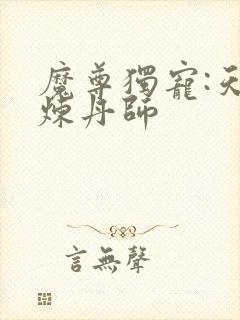 魔尊獨寵:天
煉丹師
言無聲